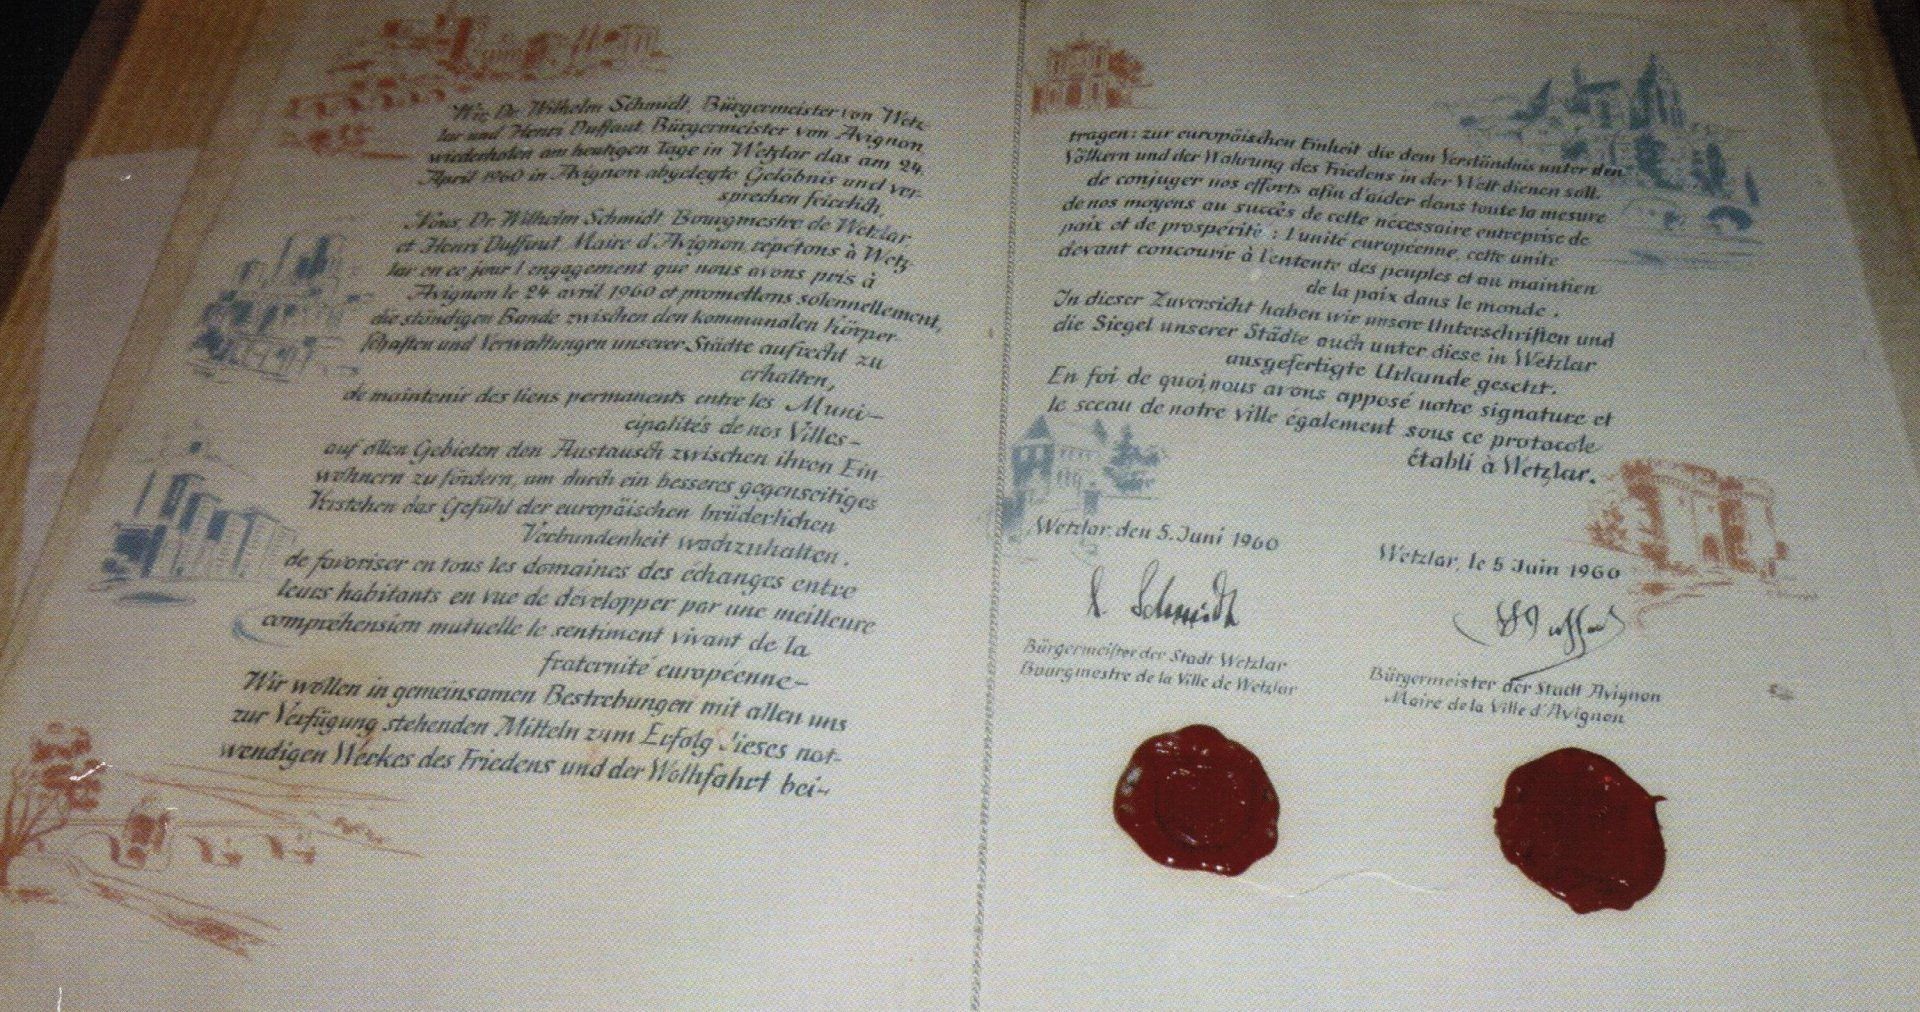 Wir, Dr. Wilhelm Schmidt, Bürgermeister von Wetz-
lar und Henri Duffaut, Bürgermeister von Avignon
wiederholen am heutigen Tage in Wetzlar das am 24.
April 1960 in Avignon abgelegte Gelöbnis und ver-
sprechen feierlich,
Nous, Dr. Wilhelm Schmidt Bourgmestre de Wetzlar
et Henri Duffaut Maire d'Avignon, répétons à Wetz
lar en ce jour l'engagement que nous avons pris à
Avignon le 24 avril 1960 et promettons solennellement,
die ständigen Bande zwischen den kommunalen Körper-
schaften und Verwaltungen unserer Städte aufrecht zu
erhalten,
de maintenir des liens permanents entre les Muni-
cipalités de nos Villes-
auf allen Gebieten den Austausch zwischen ihren Ein
wohnern zu fördern, um durch ein besseres gegenseitiges
Verstehen das Gefühl der europäischen brüderlichen
Verbundenheit wachzuhalten.
de favoriser en tous les domaines des échanges entre
leurs habitants en vue de développer par une meilleure
compréhension mutuelle le sentiment vivant de la
fraternité européenne-
Wir wollen in gemeinsamen Bestrebungen mit allen uns
zur Verfügung stehenden Mitteln zum Erfolg dieses not-
wendigen Werkes des Friedens und der Wolhfahrt bei-
tragen: zur europäischen Einheit die dem Verständnis unter den
Völkern und der Wahrung des Friedens in der Welt dienen soll.
de conjuger nos efforts afin d'aider dans toute la mesure
de nos moyens au succès de cette nécessaire entreprise de
paix et de prospérité : l'unité européenne, cette unite
devant concourir à l'entente des peuples et au maintien
de la paix dans le monde.
In dieser Zuversicht haben wir unsere Unterschriften und
die Siegel unserer Städte auch unter diese in Wetzlar
ausgefertigte Urkunde gesetzt.
En foi de quoi, nous avons apposé notre signature et
le sceau de notre ville également sous ce protocole
établi à Wetzlar.
Wetzlar, den 5. Juni 1960
Wetzlar, le 5 Juin 1960
Schmidt
Bürgermeister der Stadt Wetzlar
Bourgmestre de la Ville de Wetzlar
Bürgermeister der Stadt Avignon
Maire de la Ville d'Avignon